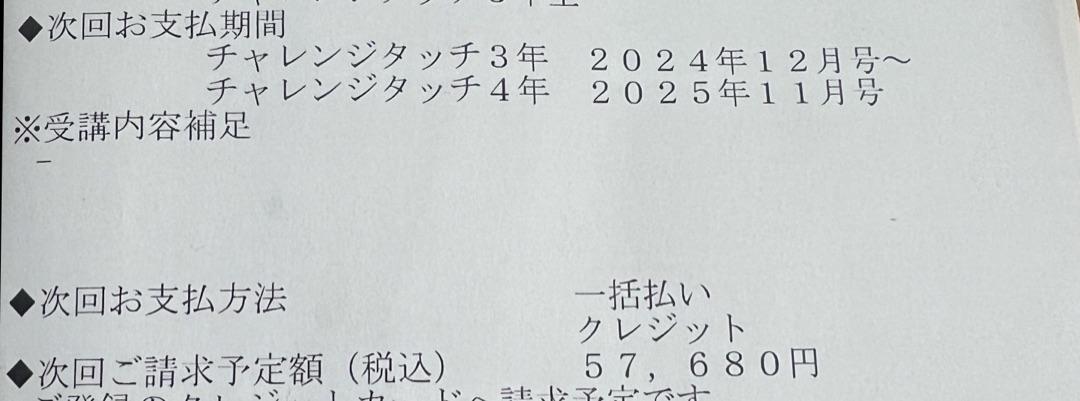 ◆次回お支払期間
チャレンジタッチ３年　２０２４年１２月号～
チャレンジタッチ４年　２０２５年１１月号
※受講内容補足
－
◆次回お支払方法　一括払い
クレジット
◆次回ご請求予定額（税込）　５７，６８０円
ご登録のクレジットカードへ請求予定です